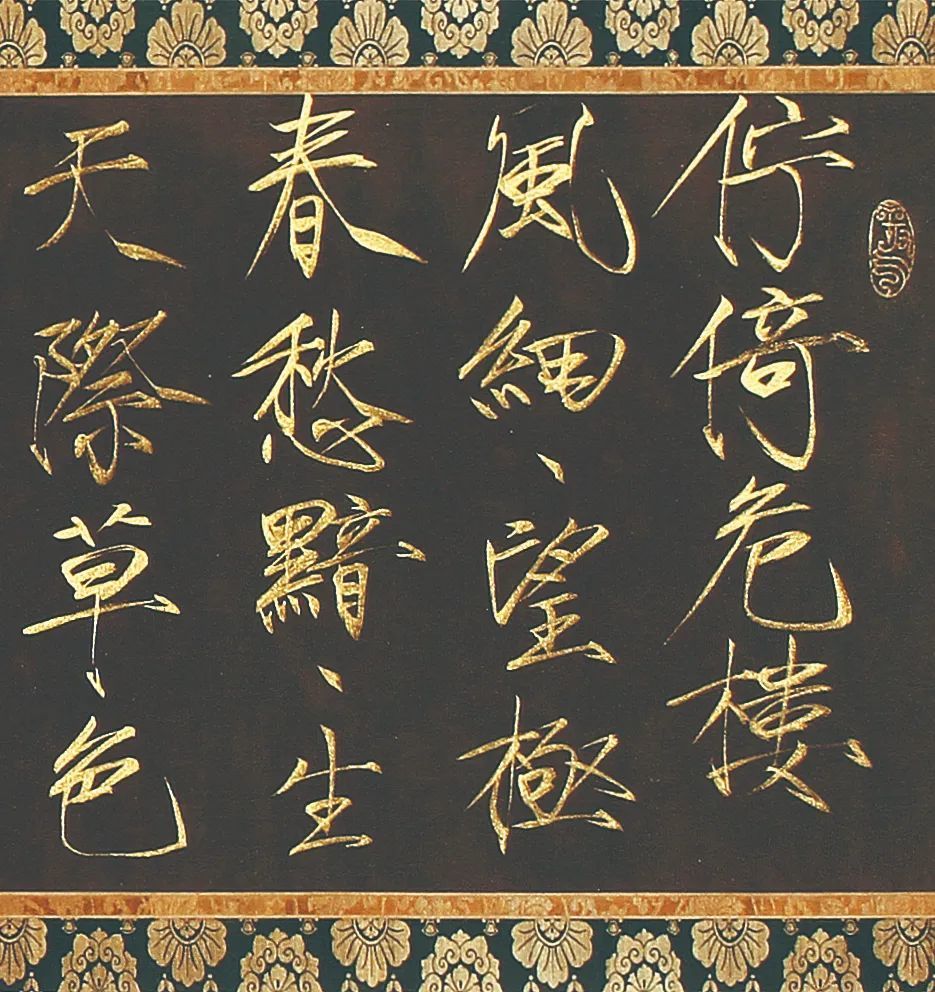 佇倚危樓
風細、望極
春愁黯、生
天際草色